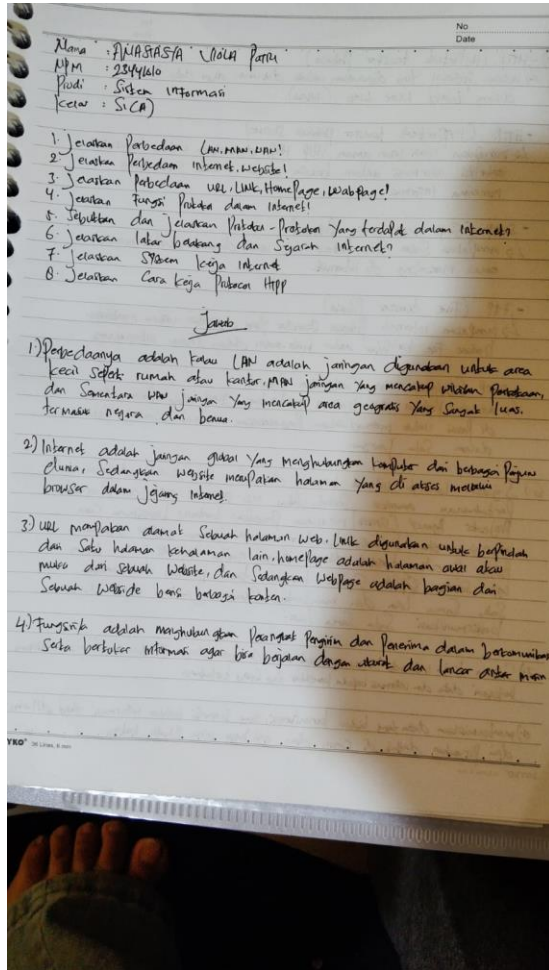 No
Date
Nama : ANASTASYA VIOLA PUTRI
NPM :
Prodi : Sistem informasi
Kelas : Si(A)
1. Jelaskan Perbedaan LAN, MAN, WAN!
2. Jelaskan Perbedaan internet, website!
3. Jelaskan Perbedaan URL, LINK, HomePage, WebPage!
4. Jelaskan Fungsi Protokol dalam internet!
5. Sebutkan dan Jelaskan Protokol-Protokol Yang terdapat dalam internet?
6. Jelaskan latar belakang dan Sejarah internet?
7. Jelaskan System kerja internet
8. Jelaskan Cara Kerja Protocol HTPP
Jawab
1.) Perbedaanya adalah kalau LAN adalah jaringan digunakan untuk area
kecil Seperti rumah atau kantor, MAN jaringan Yang mencakup wilayah Perkotaan,
dan Sementara WAN jaringan Yang mencakup area geografis Yang Sangat luas.
termasuk negara dan benua.
2.) Internet adalah jaringan global Yang menghubungkan komputer dari berbagai
dunia, Sedangkan website merupakan halaman Yang di akses melalui
browser dalam internet.
3.) URL merupakan alamat Sebuah halaman web, Link digunakan untuk berpindah
dari Satu halaman kehalaman lain, homePage adalah halaman awal atau
muka dari sebuah website, dan Sedangkan WebPage adalah bagian dari
Sebuah Webside berisi berbagai konten.
4.) Fungsinya adalah menghubungkan Perangkat Pengirim dan Penerima dalam berkomunikasi
Serta bertukar informasi agar bisa berjalan dengan akurat dan lancar antar mesin
YKO 36 Lines, 8 mm